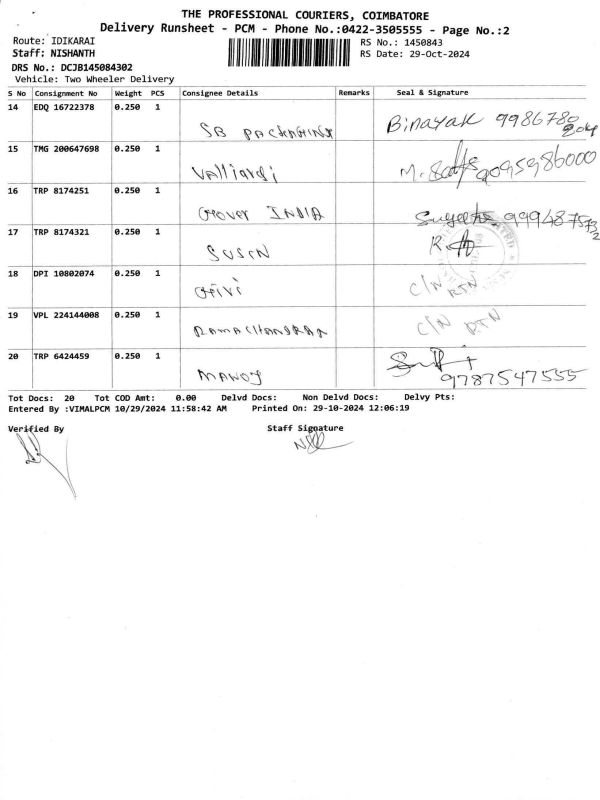 THE PROFESSIONAL COURIERS, COIMBATORE
Delivery Runsheet - PCM - Phone No.:0422-3505555 - Page No.:2
Route: IDIKARAI RS No.: 1450843
Staff: NISHANTH RS Date: 29-Oct-2024
DRS No.: DCJB145084302
Vehicle: Two Wheeler Delivery
S No Consignment No Weight PCS Consignee Details Remarks Seal & Signature
14 EDQ 16722378 0.250 1
SB PACKAGING Binayak 9986780204
15 TMG 200647698 0.250 1
Valliardi 9095986000
16 TRP 8174251 0.250 1
Grover INDIA 9994875732
17 TRP 8174321 0.250 1
SUSIN
18 DPI 10802074 0.250 1
Givi C/N RTN
19 VPL 224144008 0.250 1
RAMACHANDRAN C/N RTN
20 TRP 6424459 0.250 1
MANOJ 9787547555
Tot Docs: 20 Tot COD Amt: 0.00 Delvd Docs: Non Delvd Docs: Delvy Pts:
Entered By :VIMALPCM 10/29/2024 11:58:42 AM Printed On: 29-10-2024 12:06:19
Verified By Staff Signature